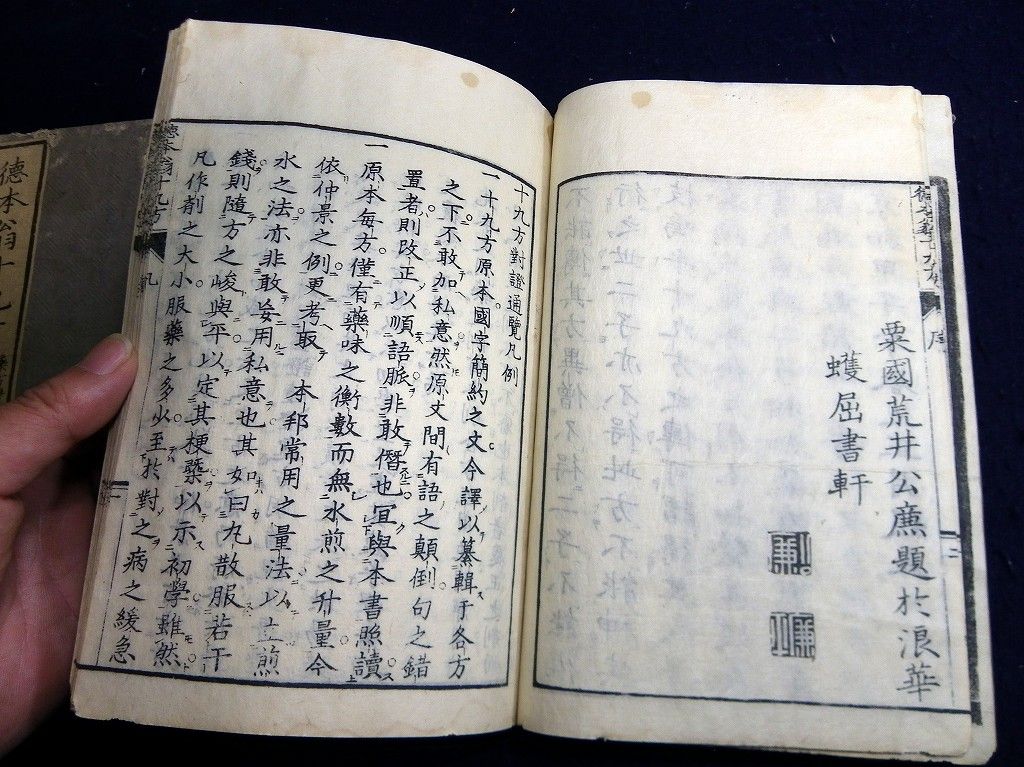 粟國荒井公廉題於浪華
蠖屈書軒
十九方對證通覽凡例
一十九方原本國字簡約之文今譯以纂輯于各方
之下不敢加私意然原文間有語之顛倒句之錯
置者則改正以順語脈非敢僭也宜與本書照讀
一原本每方僅有藥味之衡數而無水煎之升量今
依仲景之例更考取本邦常用之量法以立煎
水之法亦非敢妄用私意也其如曰丸散服若干
錢則隨方之峻與平以定其梗槩以示初學雖然
凡作劑之大小服藥之多少至於對之病之緩急
德本翁十九方
凡
序
德本翁十九